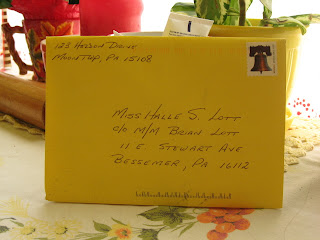 123 Hebron Drive
Moon Twp, PA 15108
Miss Halle S. Lott
c/o M/M Brian Lott
11 E. Stewart Ave
Bessemer, PA 16112